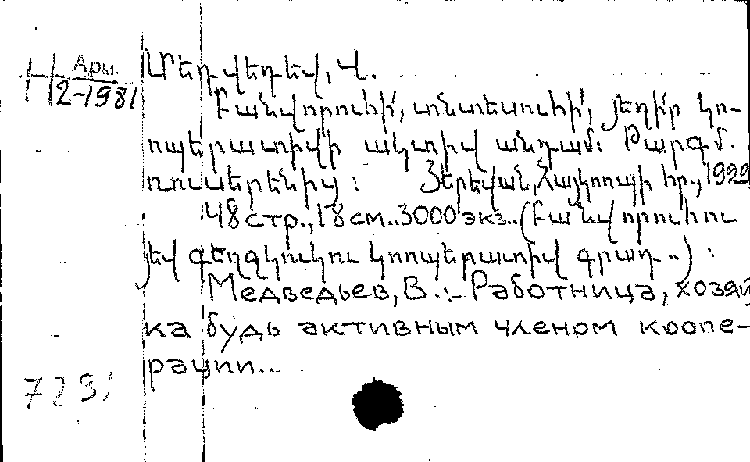 Арм.
2-1981
Մեդվեդեվ, Վ.
Բանվորուհի, տնտեսուհի, յեղիր կո-
ոպերատիվի ակտիվ անդամ: Թարգմ.
ռուսերենից: Յերեվան, Հայկոոպի հր., 1929
48 стр., 18 см.. 3000 экз.. (Բանվորուհու
յեվ գեղջկուհու կոոպերատիվ գրադ..):
Медведьев, В.:_ Работница, хозяй
ка будь активным членом коопе-
рации...
7291